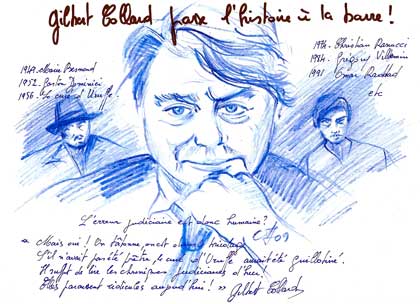 Gilbert Collard passe l'histoire à la barre !
1949 Marie Besnard
1952 - Gaston Dominici
1956 - Le curé d'Uruffe
1976 - Christian Ranucci
1984 - Grégory Villemin
1991 Omar Raddad
etc
L'erreur judiciaire est donc humaine ?
" Mais oui ! On tâtonne, on
S'il n'avait pas été prêtre, le curé d'Uruffe aurait été guillotiné.
Il suffit de lire les chroniques judiciaires d'hier !
Elles paraissent ridicules aujourd'hui ! " Gilbert Collard